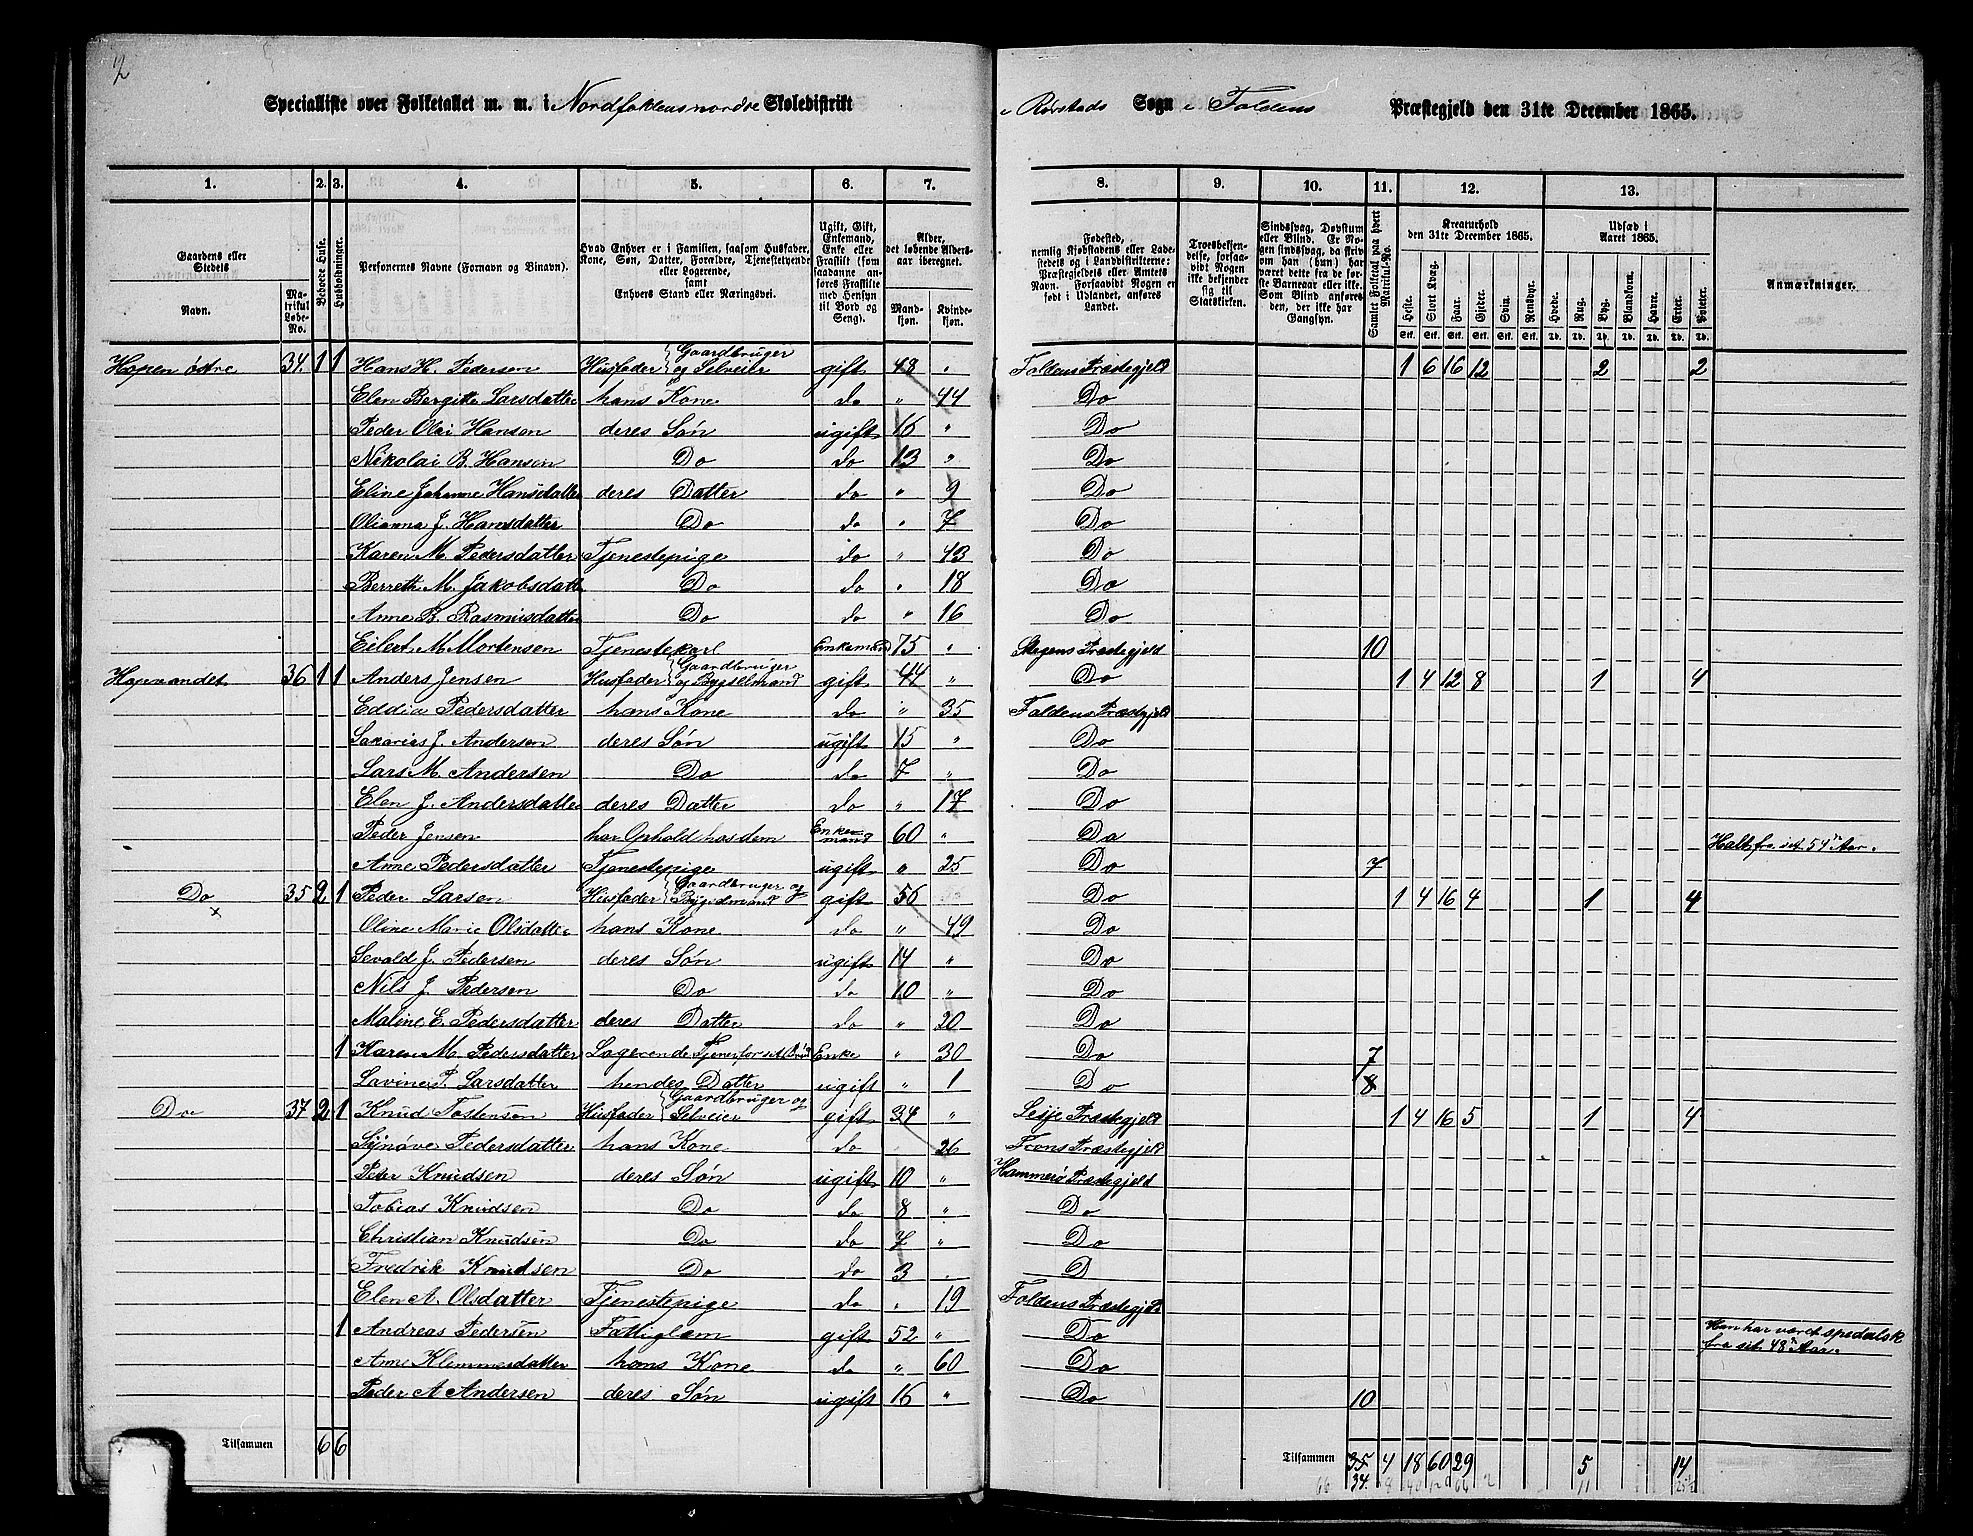 2
Specialliste over Folketallet m. m. i Nordfoldens nordre Skoledistrikt i Rørstads Sogn i Foldens Præstegjeld den 31te December 1865.
1. 2. 3. 4. 5. 6. 7. 8. 9. 10. 11. 12. 13.
Gaardens eller Stedets Navn. Matrikul Løbe-No. Beboede Huse. Husholdninger. Personernes Navne (Fornavn og Binavn). Hvad Enhver er i Familien, saasom Husfader, Kone, Søn, Datter, Forældre, Tjenestetyende eller Logerende, samt Enhvers Stand eller Næringsvei. Ugift, Gift, Enkemand, Enke eller Fraskilt (som saadanne anføres Fraskilte med Hensyn til Bord og Seng). Alder, det løbende Aldersaar iberegnet. Mandkjøn. Kvindekjøn.
Fødested, nemlig Kjøbstadens eller Ladestedets og i Landdistrikterne: Præstegjeldets eller Amtets Navn. Forsaavidt Nogen er født i Udlandet, anføres Landet. Troesbekjendelse, forsaavidt Nogen ikke bekjender sig til Statskirken. Sindssvag, Døvstum eller Blind. Er Nogen sindssvag, da skrives om han (hun) har været dette fra de første Barneaar eller ikke. Som Blind anføres den, der ikke har Gangsyn. Samlet Folketal paa hvert Matrikul-No. Kreaturhold den 31te December 1865. Heste. Stort Kvæg. Faar. Gjeder. Svin. Rensdyr. Udsæd i Aaret 1865. Hvede. Rug. Byg. Blandkorn. Havre. Erter. Poteter. Anmærkninger.
Hopen østre 34. 1 1 Hans H. Pedersen Husfader Gaardbruger og Selveier gift 48 " Foldens Præstegjeld 1 6 16 12 2 2
Elen Bergitte Larsdatter hans Kone do " 44 Do
Peder Olai Hansen deres Søn ugift 16 " Do
Nikolai B. Hansen Do do 13 " Do
Eline Johanne Hansdatter deres Datter do " 9 Do
Olianna J. Hansdatter Do do " 7 Do
Karen M. Pedersdatter Tjenestepige do " 43 Do
Berreth M. Jakobsdatt Do do " 18 Do
Anne B. Rasmusdatter Do do " 16 Do
Eilert M. Mortensen Tjenestekarl Enkemand 75 " Stegens Præstegjeld 10
Hopvandet 36 1 1 Anders Jensen Husfader Gaardbruger og Bygselmand gift 44 " Do 1 4 12 8 1 4
Eddia Pedersdatter hans Kone do " 35 Foldens Præstegjeld
Sakarias J. Andersen deres Søn ugift 15 " Do
Lars M. Andersen Do do 7 " Do
Elen J. Andersdatter deres Datter do " 17 Do
Peder Jensen har Ophold hos dem Enkemand 60 " Do Halt fra sit 54de Aar.
Anne Pedersdatter Tjenestepige ugift " 25 Do 7
Do 35 2 1 Peder Larsen Husfader Gaardbruger og Bygselmand gift 56 Do 1 4 16 4 1 4
x
Oline Marie Olsdatter hans Kone do " 49 Do
Sevald J. Pedersen deres Søn ugift 14 " Do
Nils J. Pedersen Do do 10 " Do
Maline E. Pedersdatter deres Datter do " 20 Do
1 Karen M. Pedersdatter Logerende Tjener for sit Brød Enke " 30 Do 7
Lavine P. Larsdatter hendes Datter ugift " 1 Do 8
Do 37 2 1 Knud Tostensen Husfader Gaardbruger og Selveier gift 34 " Lesje Præstegjeld 1 4 16 5 1 4
Synøve Pedersdatter hans Kone do " 26 Frons Præstegjeld
Peter Knudsen deres Søn ugift 10 " Hammerø Præstegjeld
Tobias Knudsen Do do 8 " Do
Christian Knudsen Do do 7 " Do
Fredrik Knudsen Do do 3 " D
Elen A. Olsdatter Tjenestepige do " 19 Foldens Præstegjeld
1 Andreas Pedersen Fattiglem gift 52 " Do Han har været spedalsk fra sit 48de Aar.
Anne Klemmesdatter hans Kone do " 60 Do
Peder A Andersen deres Søn ugift 16 " Do 10
Tilsammen 6 6 Tilsammen 35 4 18 60 29 5 14
34.